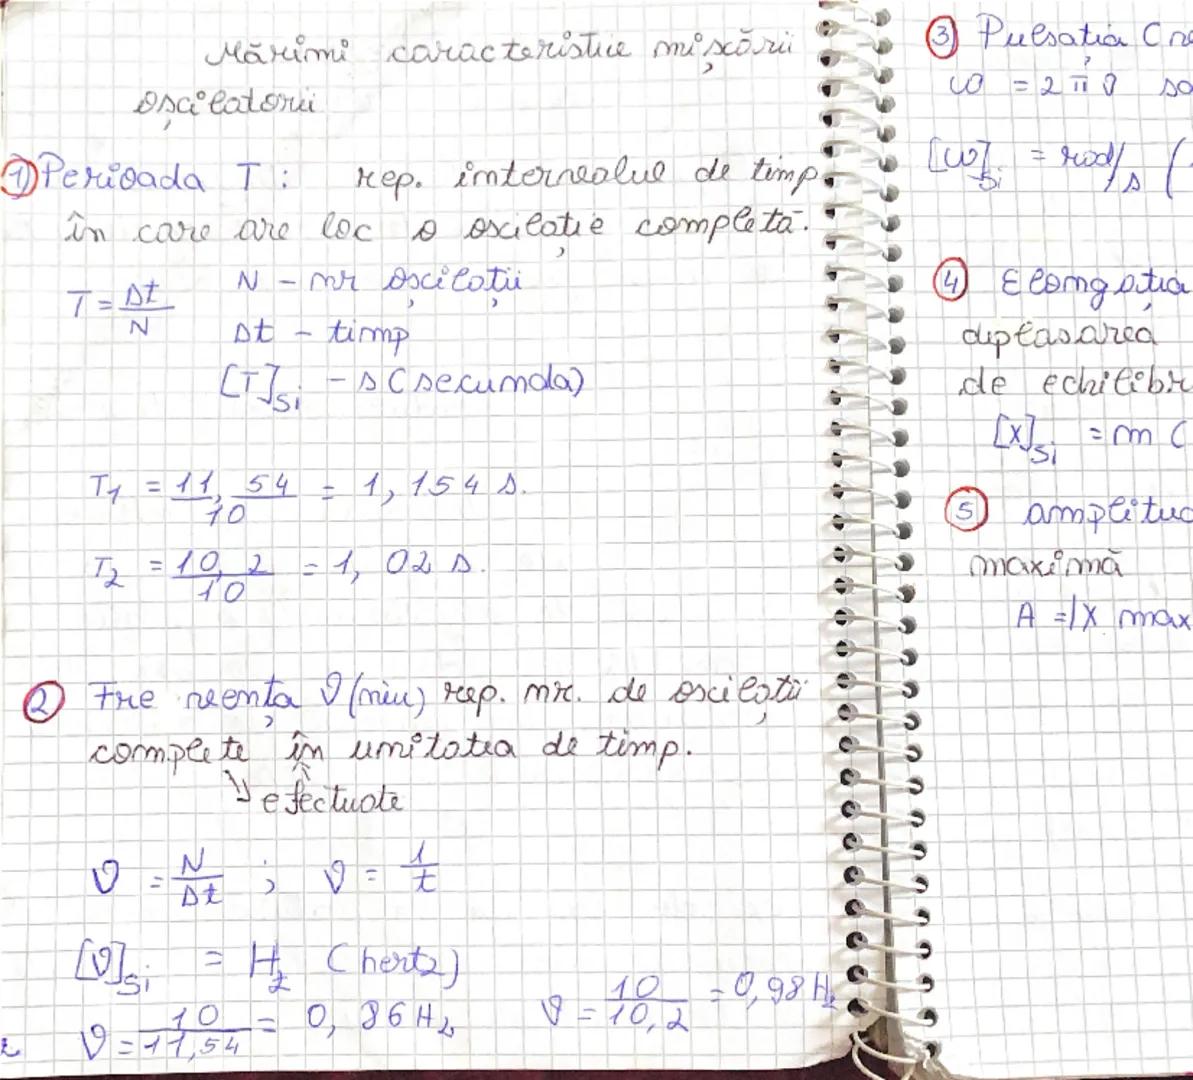 Mărimi caracteristice mișcării
oscilatorii
① Perioada T: rep. intervalul de timp
în care are loc o oscilație completă.
T = Δt/N N - nr oscilații
Δt - timp
[T]Si - s (secunda)
T1 = 11,54/10 = 1,154 s.
T2 = 10,2/10 = 1,02 s.
② Frecvența ν (niu) rep. nr. de oscilații
complete în unitatea de timp.
efectuate
ν = N/Δt ; ν = 1/t
[ν]Si = Hz (hertz)
ν = 10/11,54 = 0,86 Hz ν = 10/10,2 = 0,98 Hz
③ Pulsația
ω = 2πν
[ω]Si = rad/s (
④ Elongația
deplasarea
de echilibr
[x]Si = m (
⑤ amplitud
maximă
A = |X max